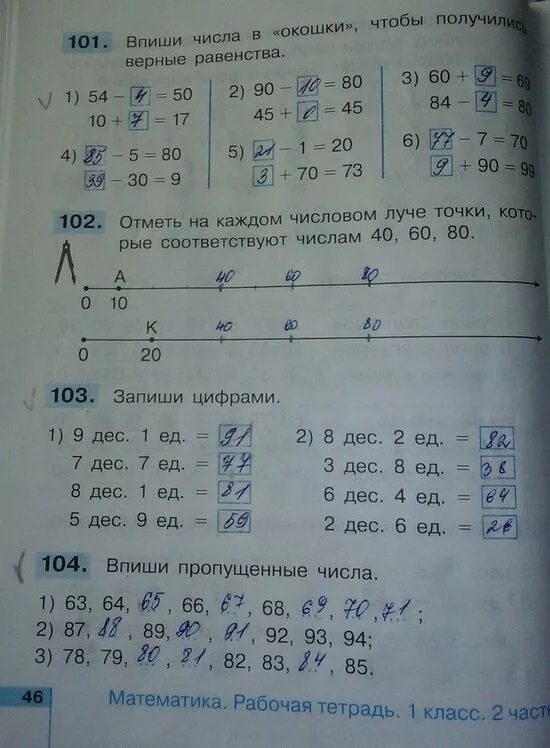 101. Впиши числа в «окошки», чтобы получились
верные равенства.
1) 54 – 4 = 50 2) 90 – 10 = 80 3) 60 + 9 = 69
10 + 7 = 17 45 + 0 = 45 84 – 4 = 80
4) 85 – 5 = 80 5) 21 – 1 = 20 6) 77 – 7 = 70
39 – 30 = 9 3 + 70 = 73 9 + 90 = 99
102. Отметь на каждом числовом луче точки, кото-
рые соответствуют числам 40, 60, 80.
А 40 60 80
0 10
К 40 60 80
0 20
103. Запиши цифрами.
1) 9 дес. 1 ед. = 91 2) 8 дес. 2 ед. = 82
7 дес. 7 ед. = 77 3 дес. 8 ед. = 38
8 дес. 1 ед. = 81 6 дес. 4 ед. = 64
5 дес. 9 ед. = 59 2 дес. 6 ед. = 26
104. Впиши пропущенные числа.
1) 63, 64, 65, 66, 67, 68, 69, 70, 71;
2) 87, 88, 89, 90, 91, 92, 93, 94;
3) 78, 79, 80, 81, 82, 83, 84, 85.
46 Математика. Рабочая тетрадь. 1 класс. 2 част